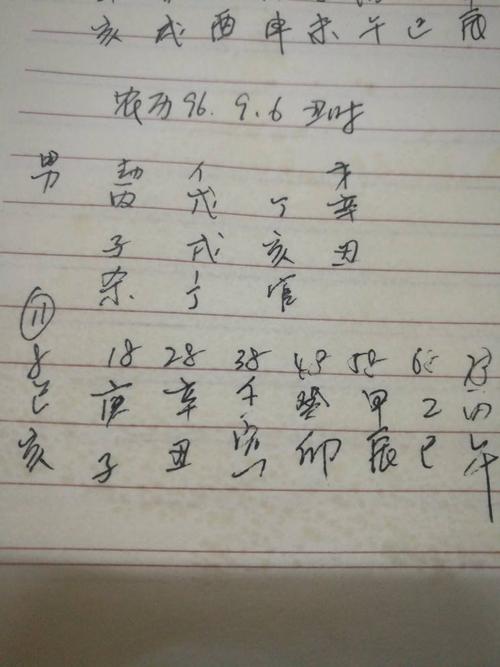 亥 戌 酉 申 未 午 巳 辰
农历96.9.6 丑时
男 劫 亻 才
丙 戊 丁 辛
子 戌 亥 丑
杀 亻 官
⑪
8 18 28 38 48 58 68
己 庚 辛 壬 癸 甲 乙 丙
亥 子 丑 寅 卯 辰 巳 午